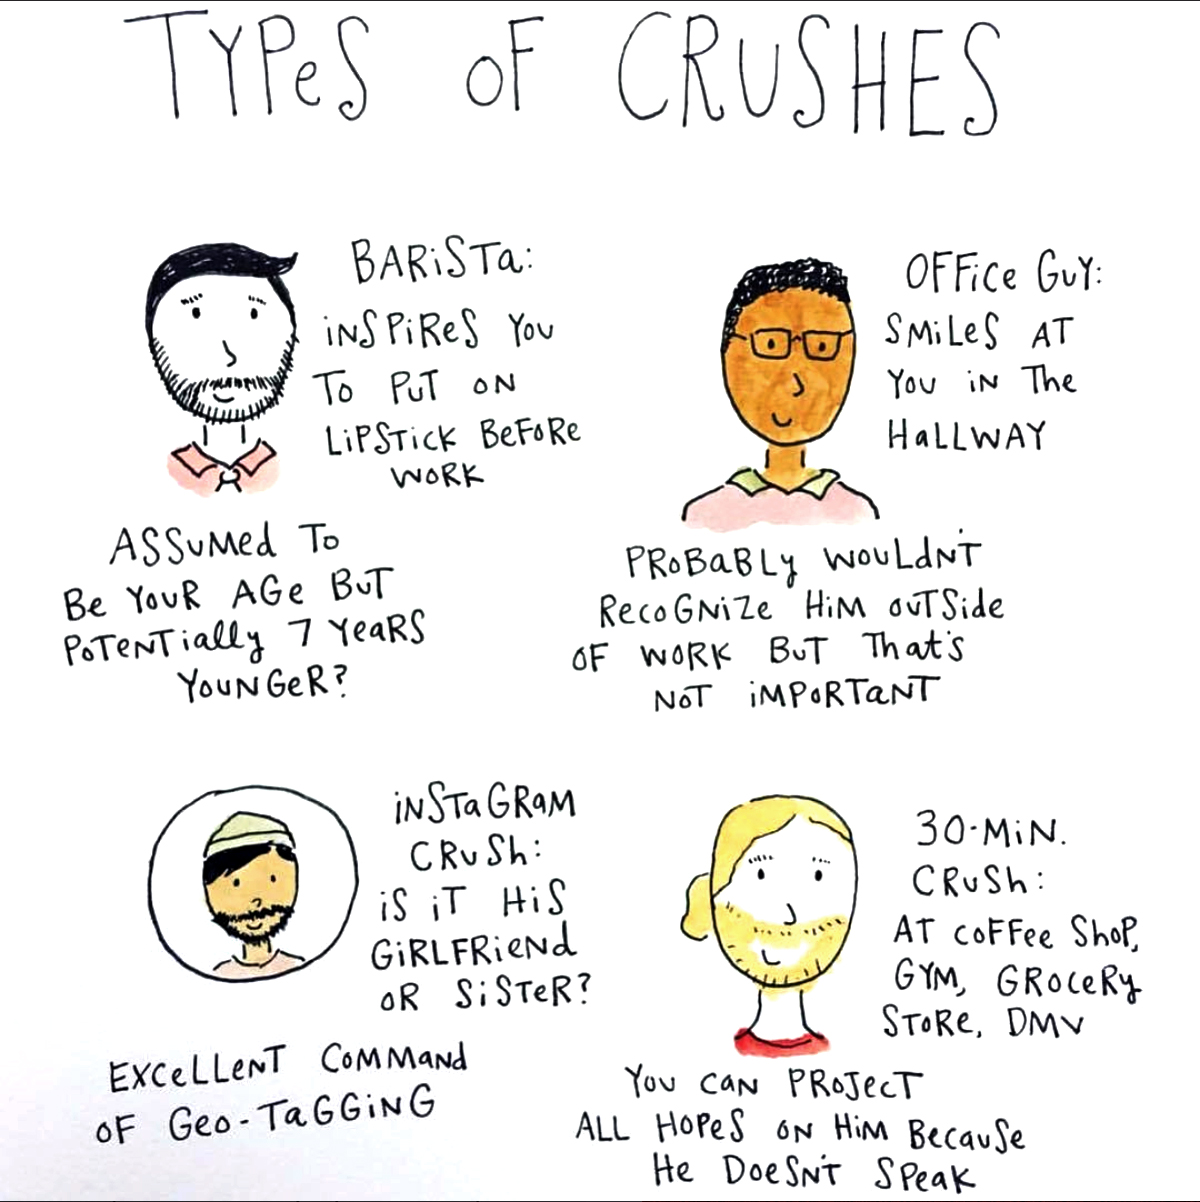 TYPeS oF CRUSHES
BARiSTa:
iNSPiReS You
To PuT oN
LiPSTicK BeFoRe
WoRK
ASSuMed To
Be YouR AGe BuT
PoTeNTially 7 YeaRS
YouNGeR?
OFFice GuY:
SMiLeS AT
You iN The
HaLLWAY
PRoBaBLy WouLdN'T
RecoGNiZe HiM ouTSide
oF WoRK BuT That's
NoT iMPoRTaNT
iNSTaGRaM
CRuSh:
iS iT HiS
GiRLFRieNd
oR SiSTeR?
EXCeLLeNT CoMMaNd
oF Geo-TaGGiNG
30-MiN.
CRuSh:
AT CoFFee ShoP,
GYM, GRoceRy
SToRe, DMV
You CaN PRoJecT
ALL HoPeS oN HiM BecauSe
He DoeSN'T SPeaK